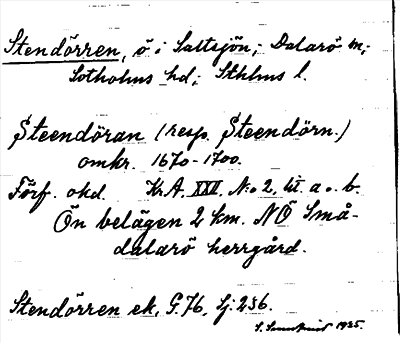 Stendörren, ö i Saltsjön, Dalarö sn;
Sotholms hd; Sthlms l.
Steendöran (resp. Steendörn.)
omkr. 1670-1700.
Förf. okd. Kr.A. XXV. N:o 2, lit. a o. b.
Ön belägen 2 km. NÖ Små-
dalarö herrgård.
Stendörren ek. G. 76, Sj: 236.
1925.